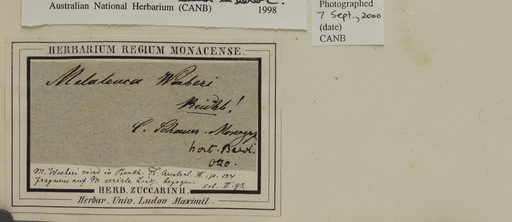 Australian National Herbarium (CANB) 1998
Photographed
7 Sept., 2000
(date)
CANB
HERBARIUM REGIUM MONACENSE.
Melaleuca Waberi
Reichb!
C. Schauer. Monogr.
hort. Berol.
Otto.
M. Waeberi wird in Benth. Fl. Austral. III. p. 134
fragweise auf M. seriata Lindl. bezogen.
HERB. ZUCCARINII.
Herbar. Univ. Ludov Maximil.